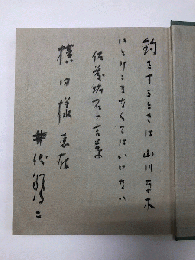 釣をするときは山川草木
にとけこまなくてはいけない
佐藤垢石の言葉
様
井伏鱒二